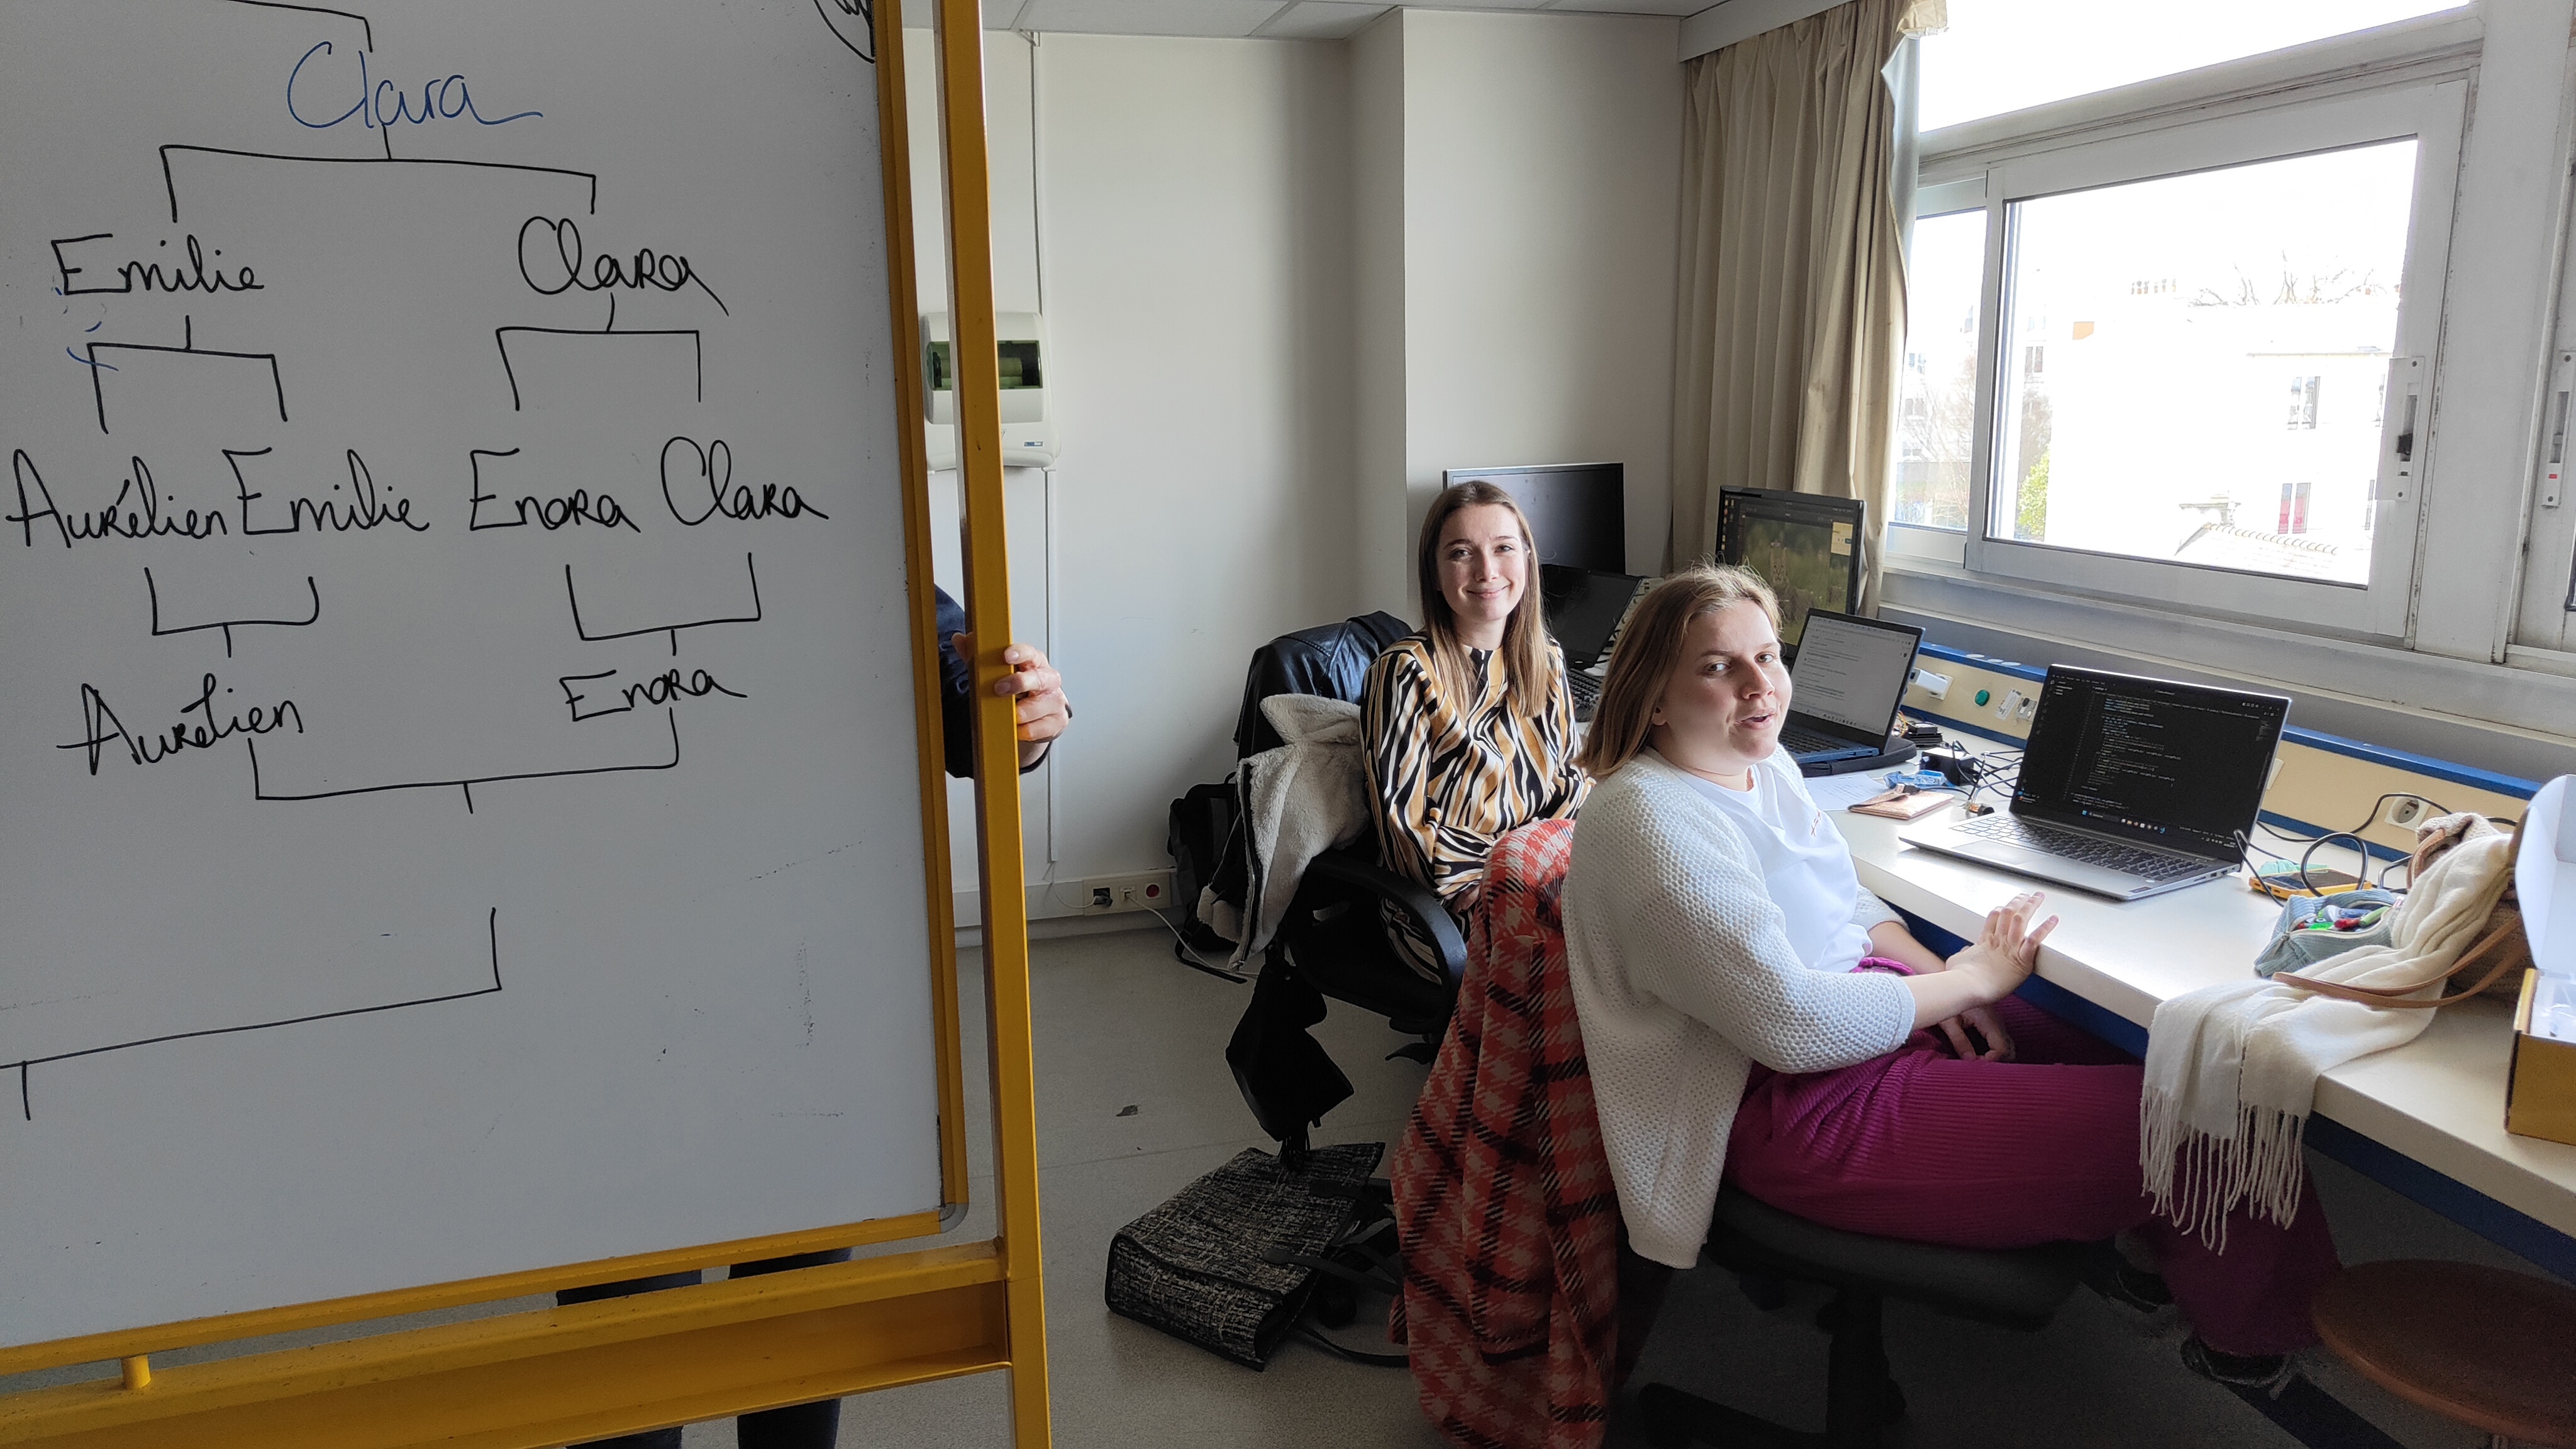 Clara
Emilie Clara
Aurélien Emilie Enora Clara
Aurélien Enora